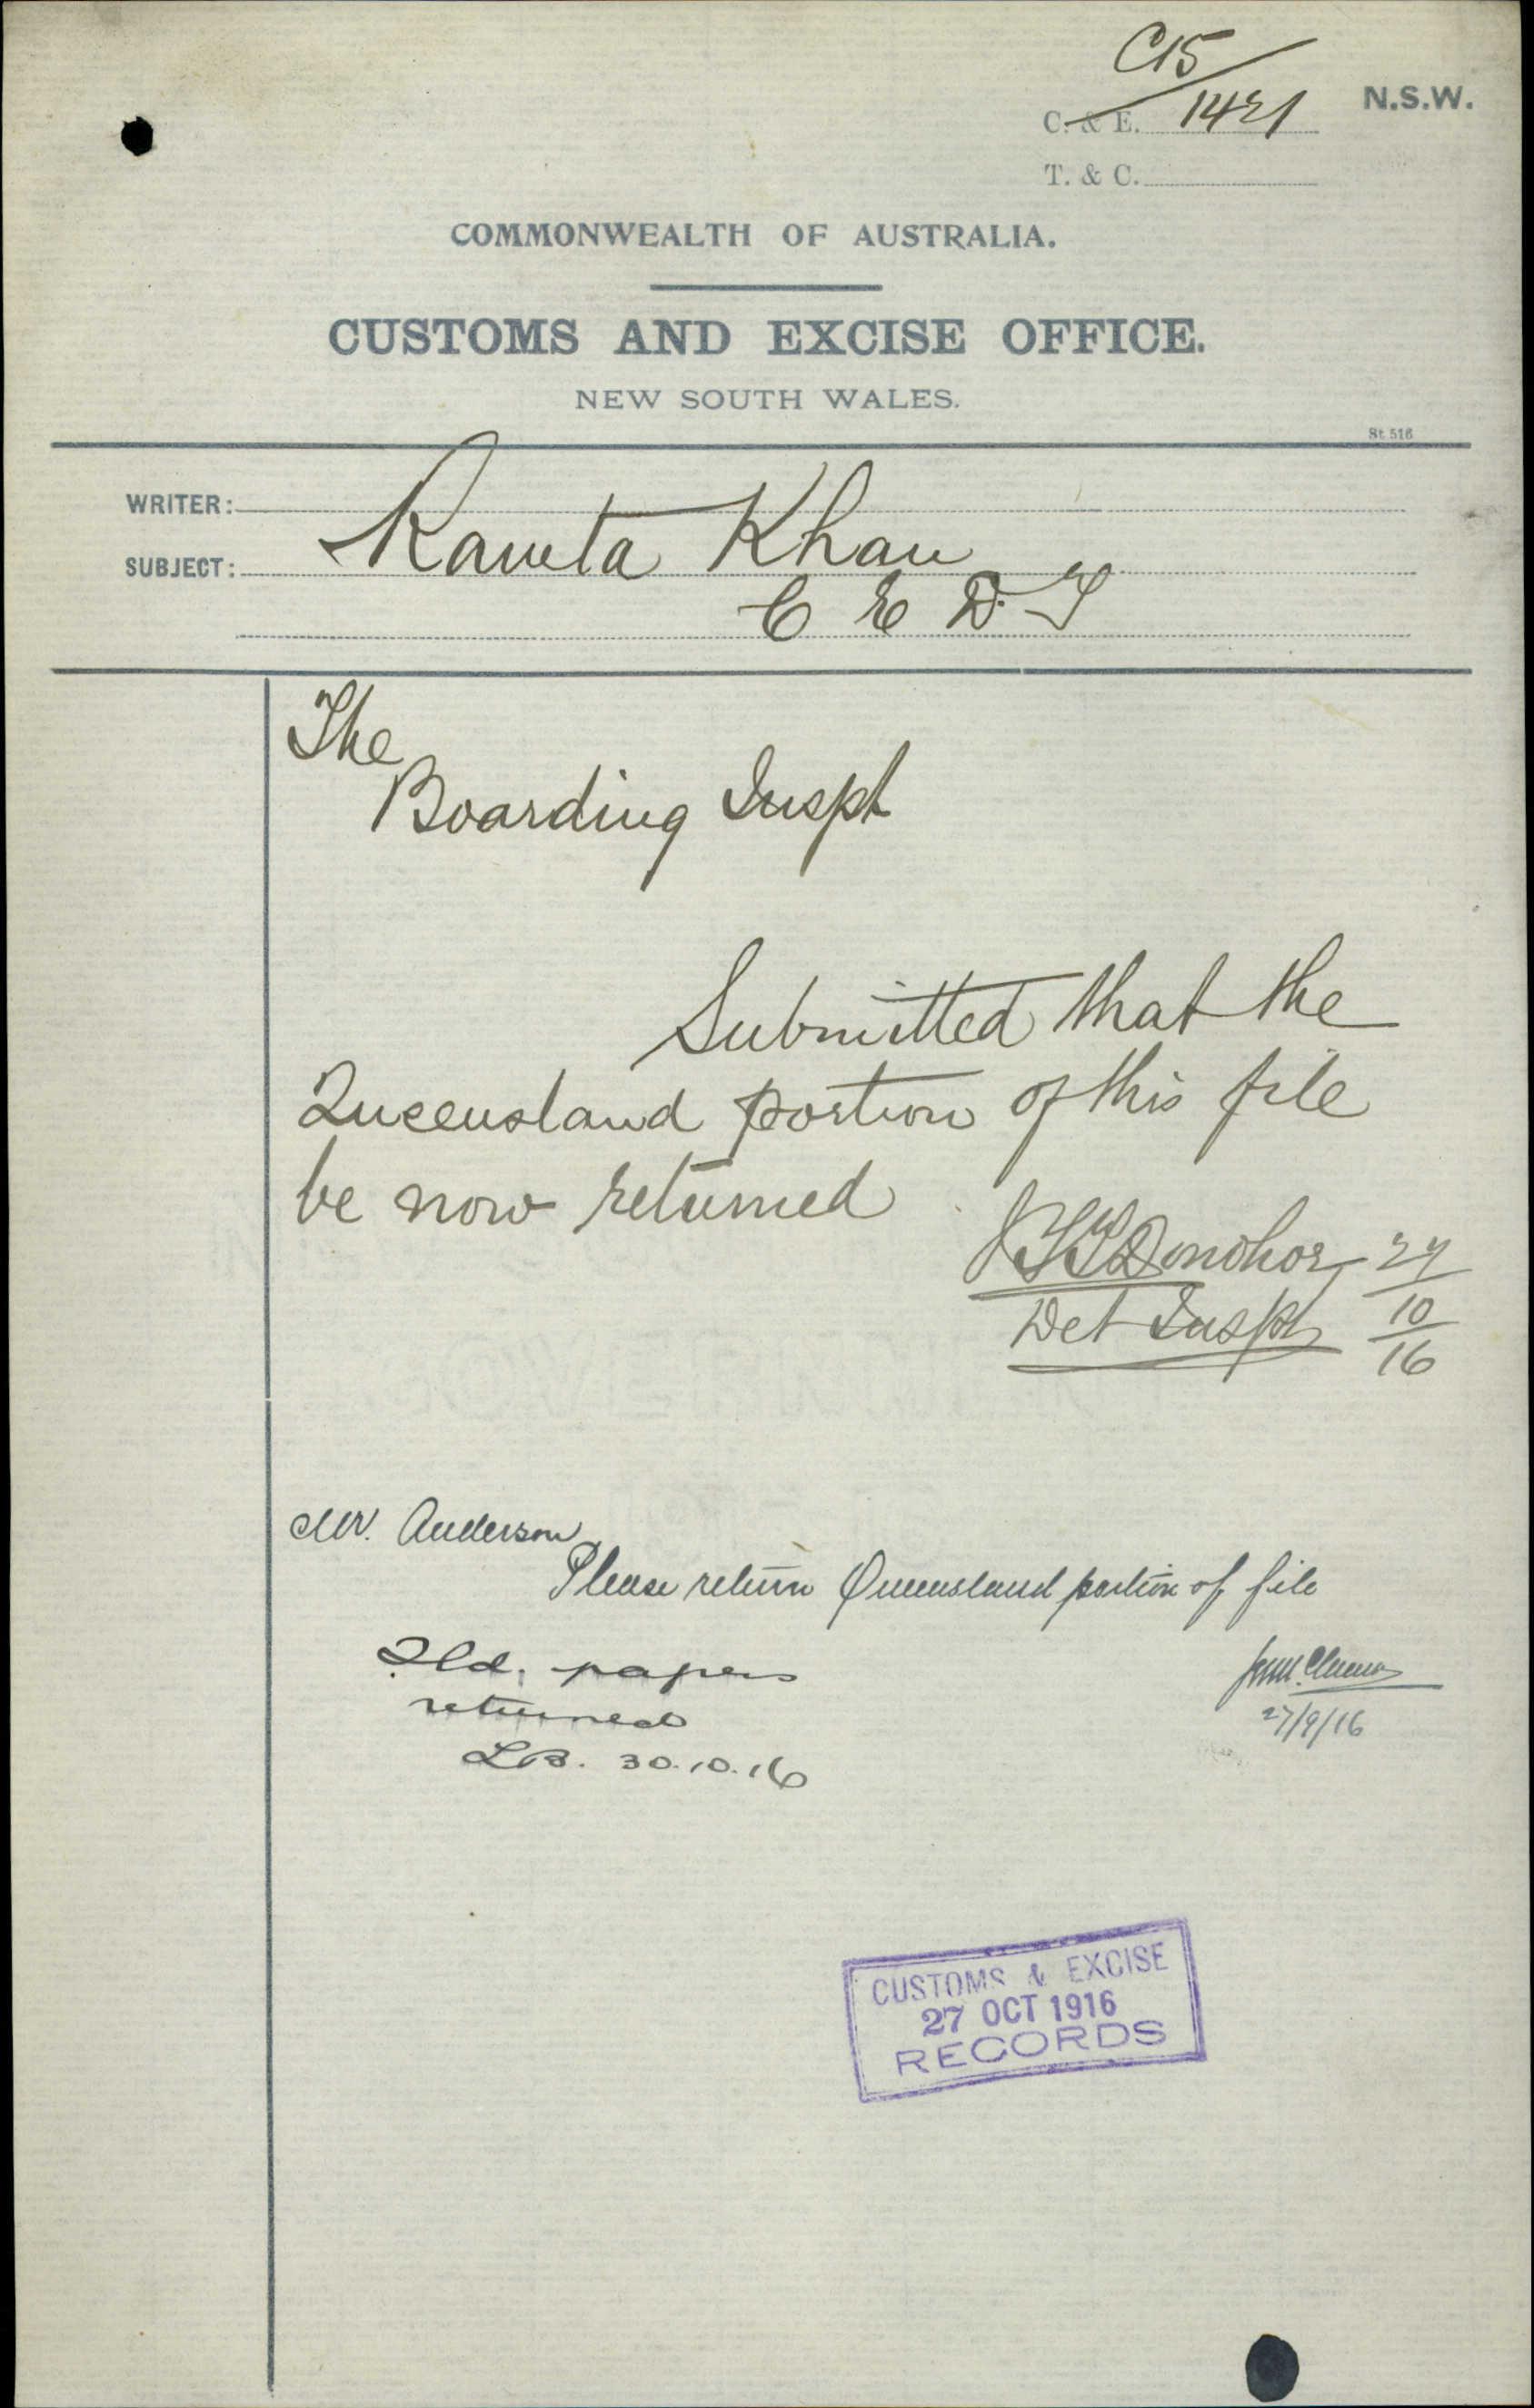 C15/1421
N.S.W.
C. & E.
T. & C.
COMMONWEALTH OF AUSTRALIA.
CUSTOMS AND EXCISE OFFICE.
NEW SOUTH WALES.
St. 516
WRITER:
SUBJECT: Khan
C E D T
The
Boarding Inspt
Submitted that the
Queensland portion of this file
be now returned
Donohoe 27/10/16
Det Inspr
Mr. Anderson
Please return Queensland portion of file
Qld. papers
returned
27/9/16
LB. 30.10.16
CUSTOMS & EXCISE
27 OCT 1916
RECORDS